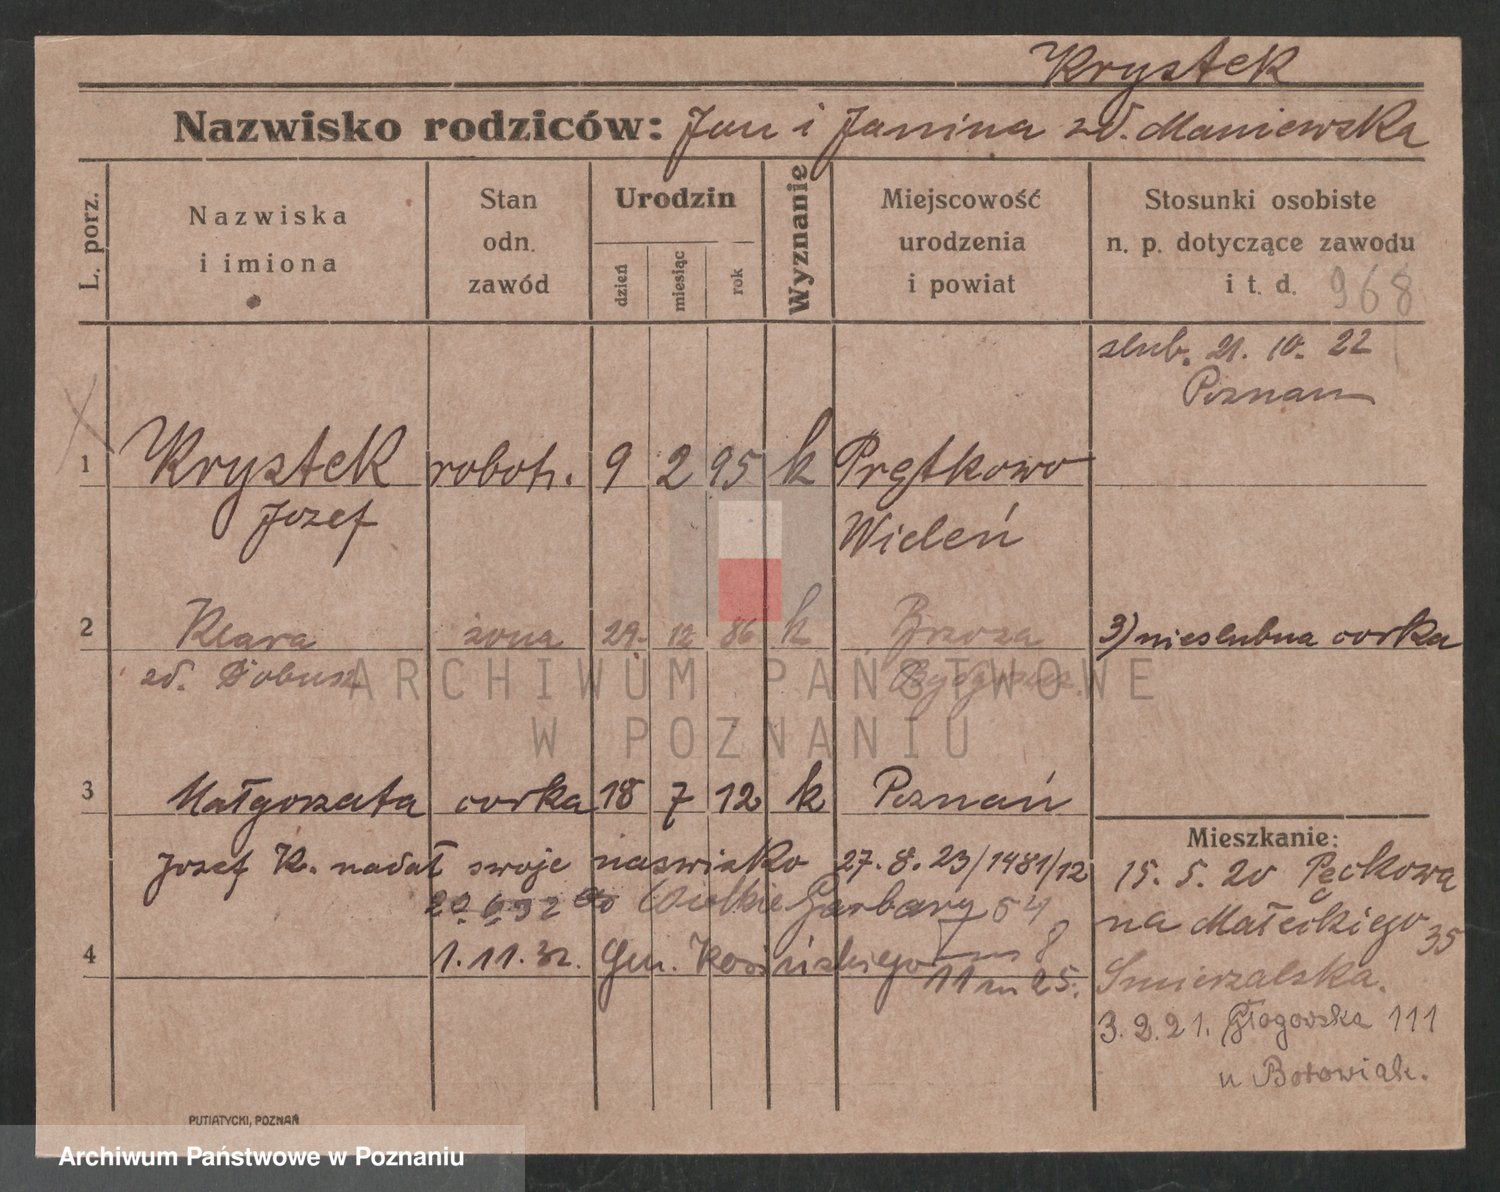 Krystek
Nazwisko rodziców: Jan i Janina zd. Maniewska
L. porz.
Nazwiska i imiona
Stan odn. zawód
Urodzin
dzień
miesiąc
rok
Wyznanie
Miejscowość urodzenia i powiat
Stosunki osobiste n. p. dotyczące zawodu i t. d. 968
slub. 21. 10. 22
Poznan
1 Krystek robotn. 9 2 95 k Prętkowo
Jozef Wieleń
2 Klara zona 29. 12 86 k Brzoza 3) nieslubna corka
zd. Dobusz
ARCHIWUM PAŃSTWOWE
W POZNANIU
3 Małgorzata corka 18 7 12 k Poznań
Mieszkanie:
Jozef K. nadał swoje naswisko 27. 8. 23/1481/12
15. 5. 20
Wielkie Garbary 54
m 8
na Małeckiego 35
4 1. 11. 32. Gen. Kosińskiego 11 m 25.
3. 2. 21. Głogowska 111
u
PUTIATYCKI, POZNAŃ
Archiwum Państwowe w Poznaniu